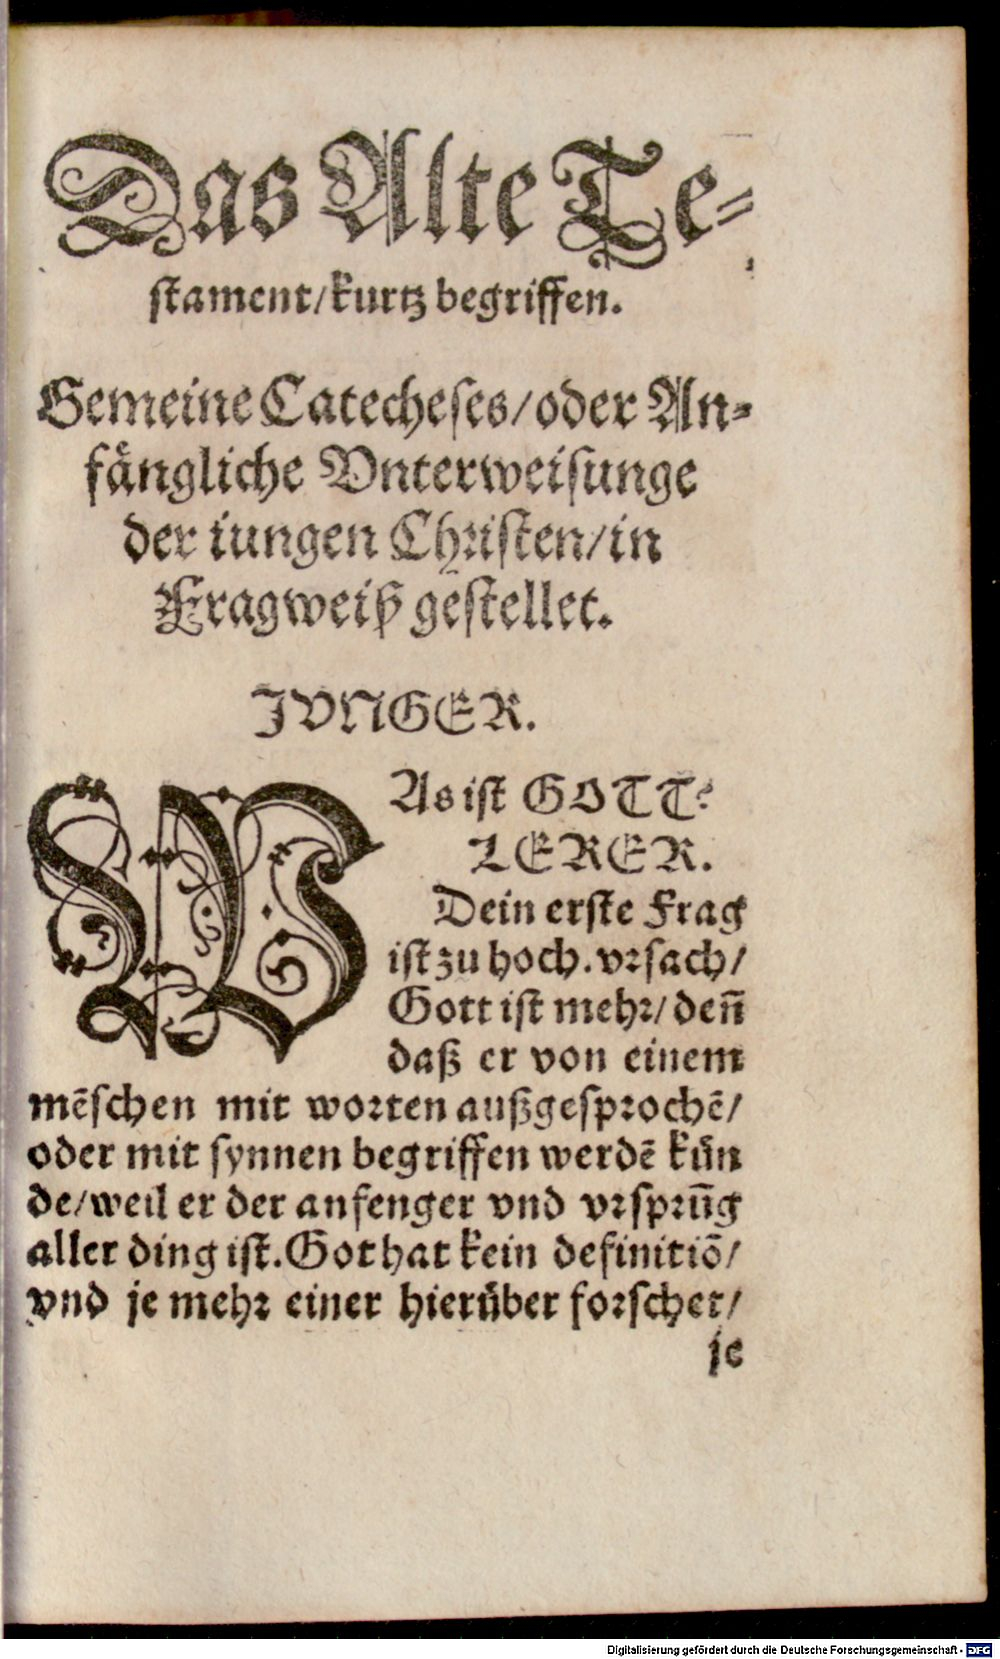 Das Alte Te-
stament/kurtz begriffen.
Gemeine Catecheses/oder An-
fängliche Vnterweisunge
der iungen Christen/in
Fragweiß gestellet.
JVNGER.
WAs ist GOTT?
LERER.
Dein erste Frag
ist zu hoch. vrsach/
Gott ist mehr/ deñ
daß er von einem
mēschen mit worten außgesprochē/
oder mit synnen begriffen werdē kün
de/weil er der anfenger vnd vrsprūg
aller ding ist. Got hat kein definitiō/
vnd je mehr einer hierüber forschet/
je
Digitalisierung gefördert durch die Deutsche Forschungsgemeinschaft - DFG